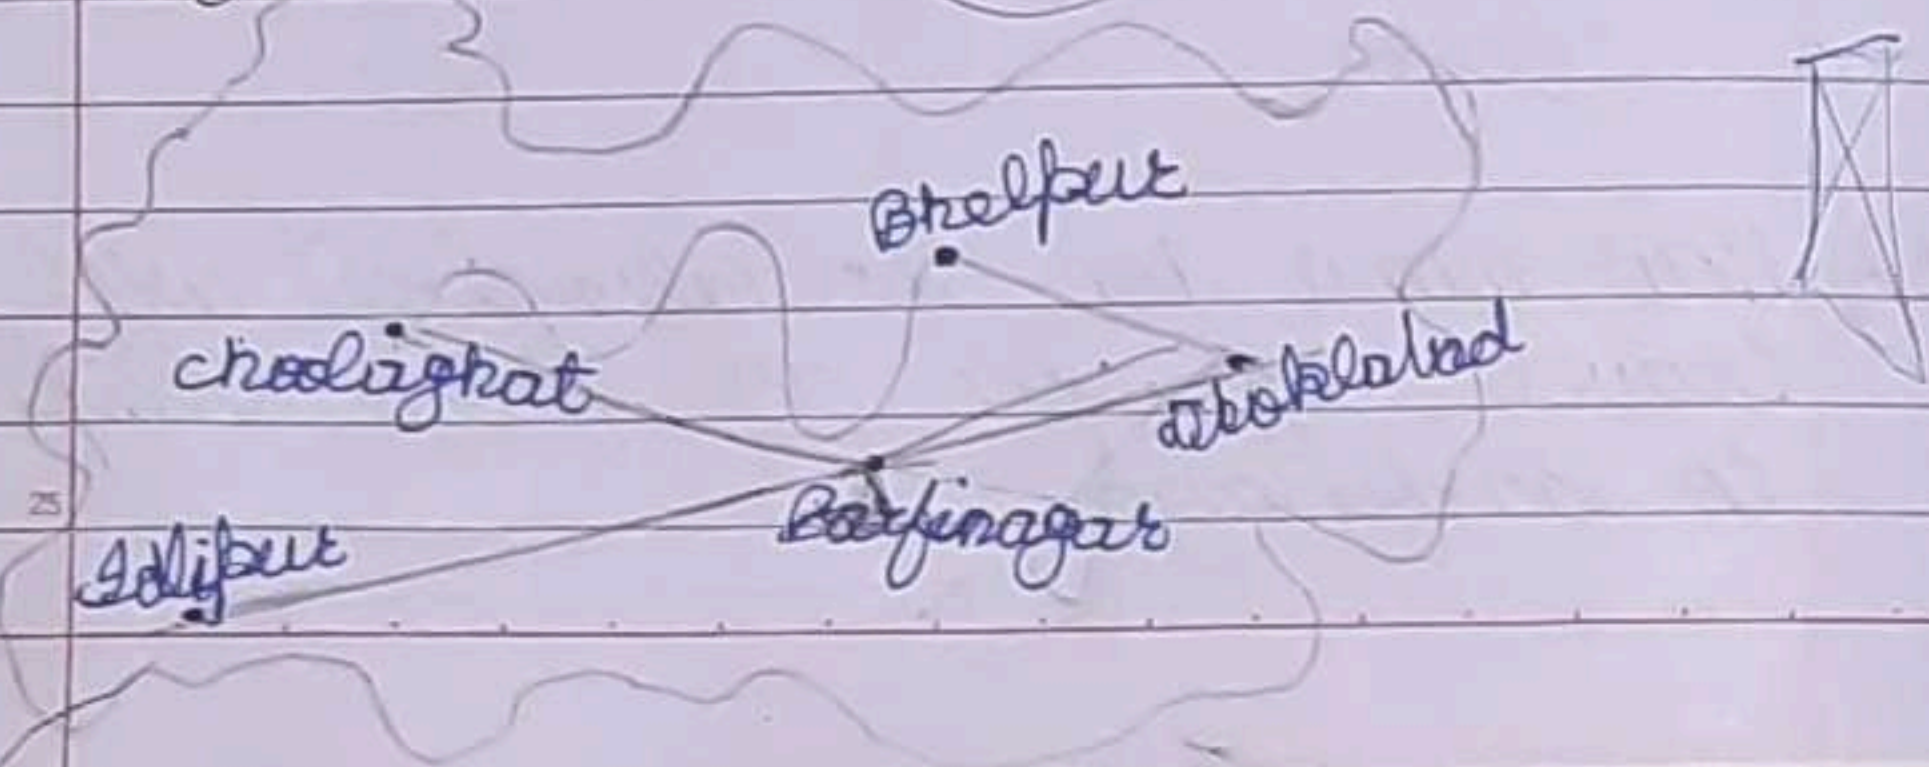 Bhelpur
Choolaghat
Dhoklabad
Barfinagar
25
Idlipur